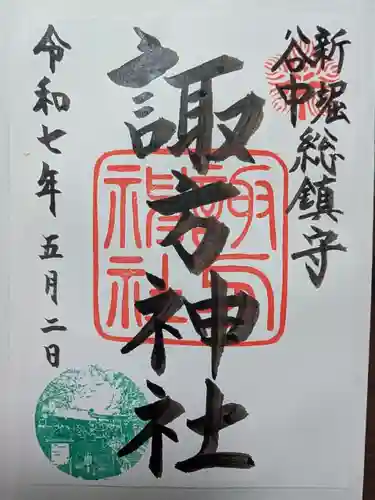 新堀
谷中
総鎮守
諏方神社
令和七年 五月二日
諏方
神社